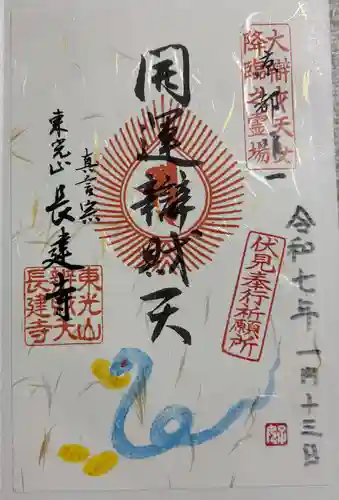 大辯財天女
降臨之霊場
京都
開運辯財天
令和七年一月十三日
伏見奉行祈願所
真言宗
東光山長建寺
東光山
辯財天
長建寺